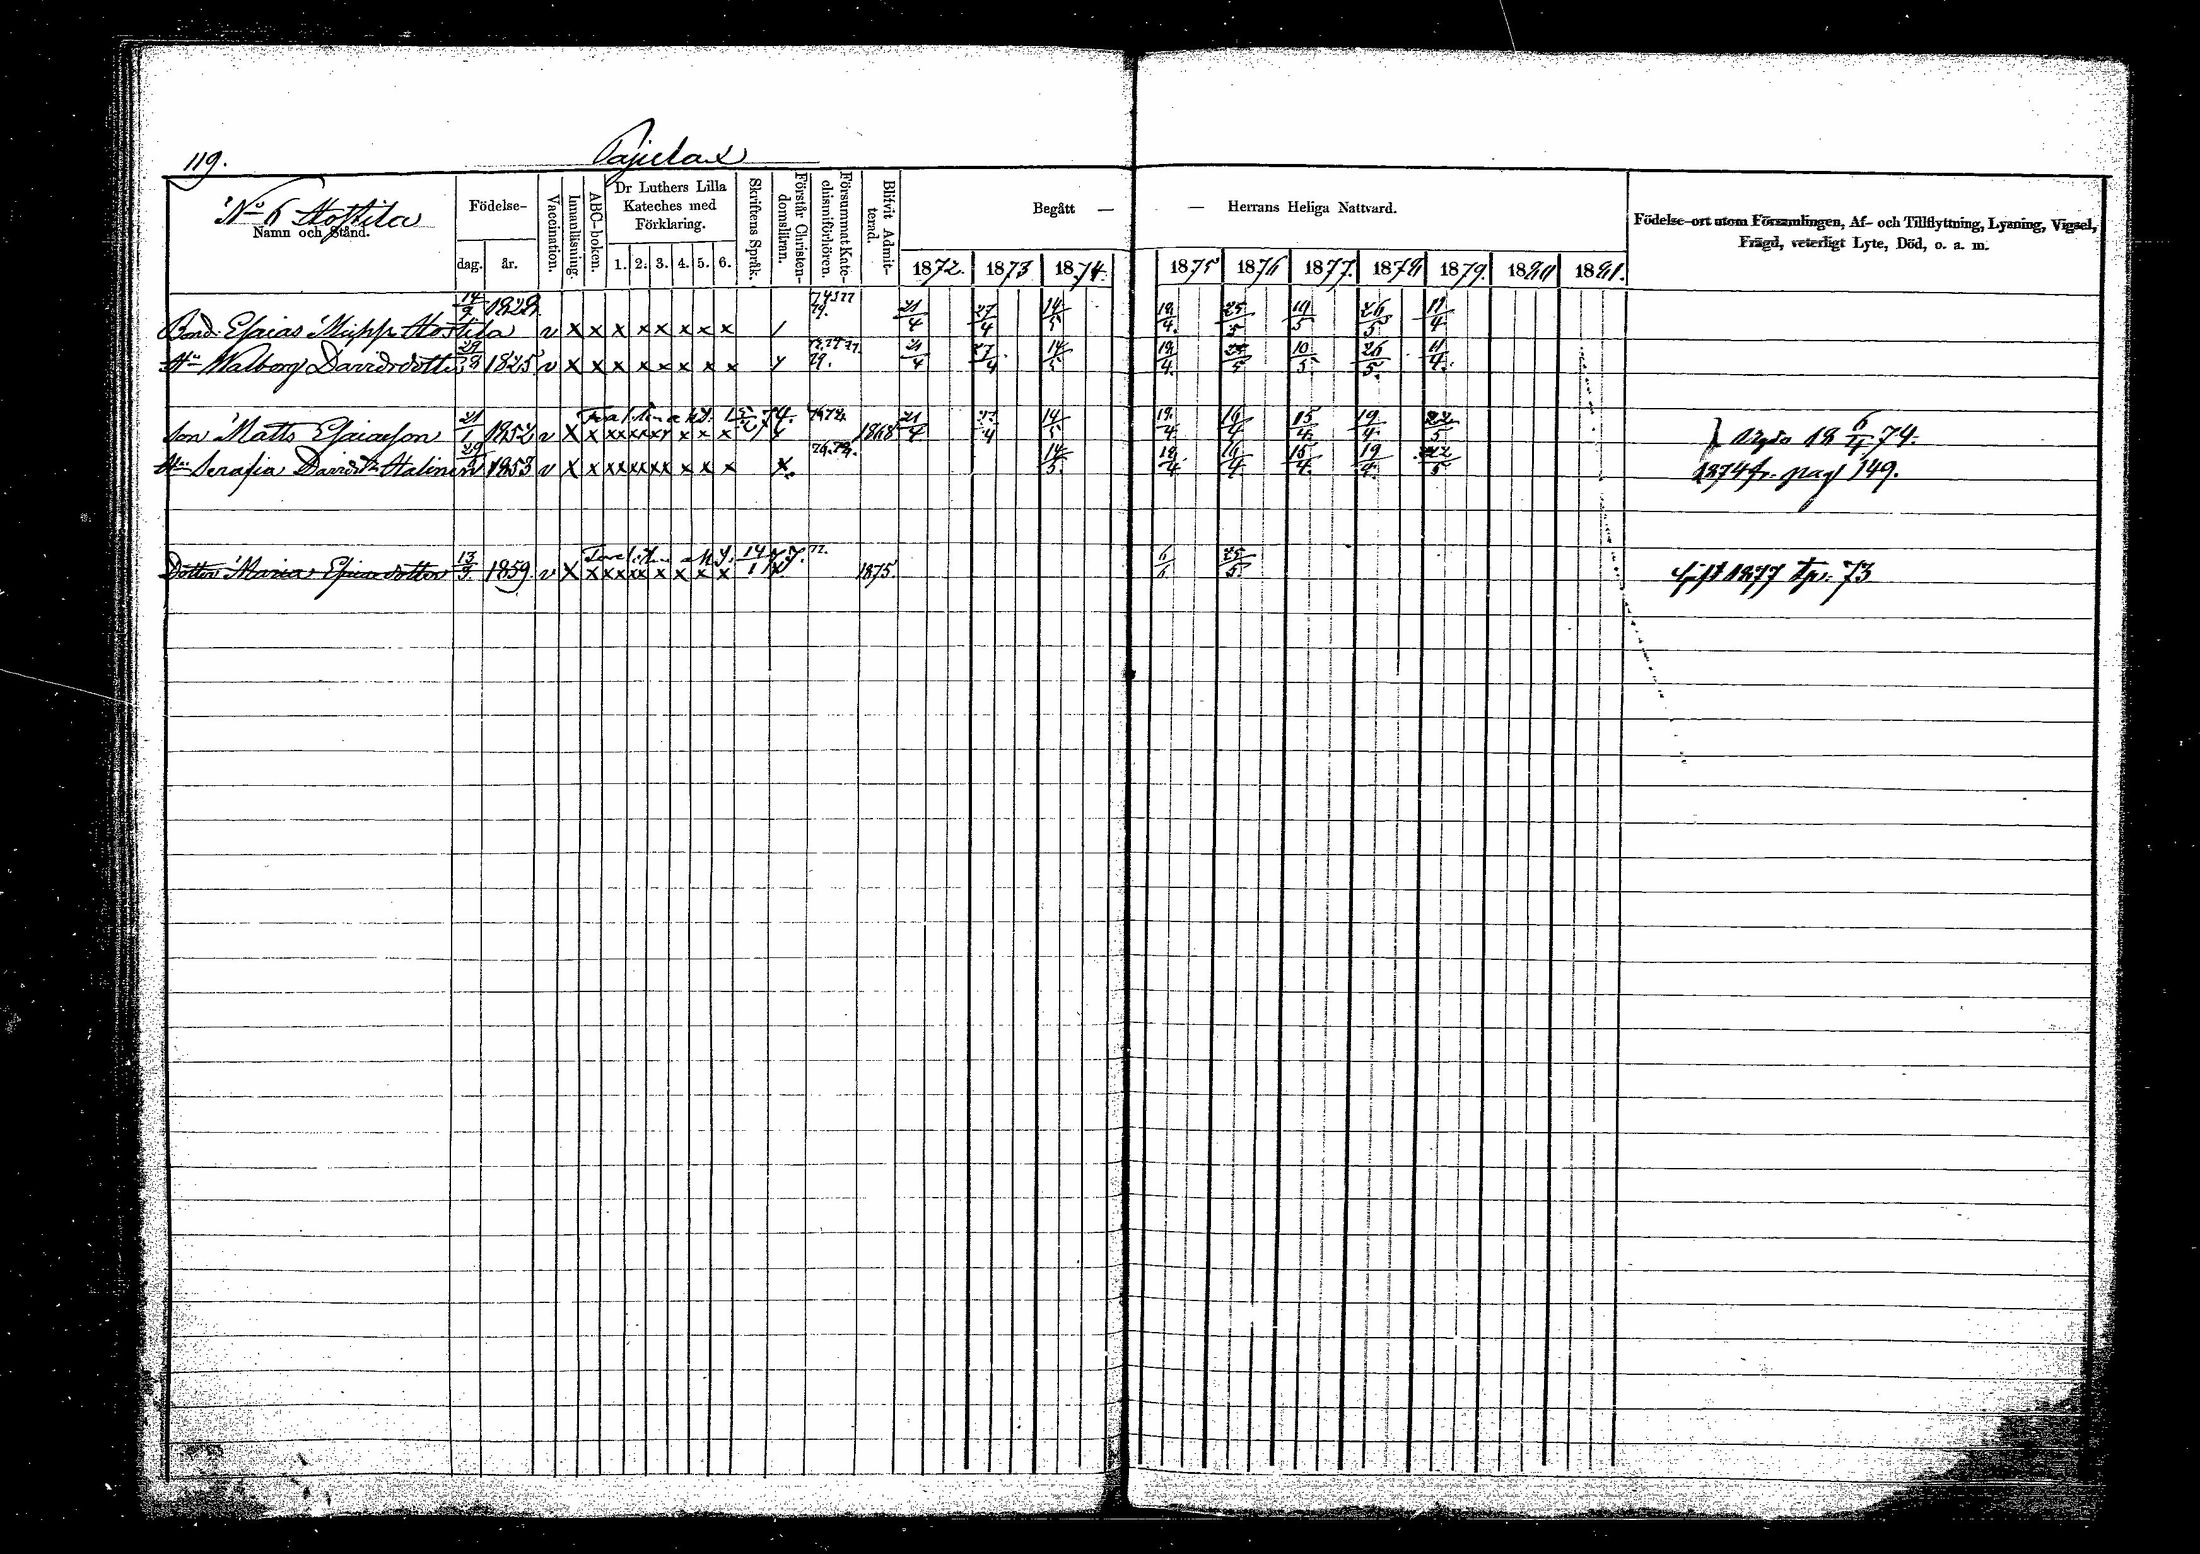 119.
Pajulax
No 6 Hottila
Namn och Stånd.
Födelse-
dag. år.
Vaccination.
Innanläsning.
ABC-boken.
Dr Luthers Lilla
Kateches med
Förklaring.
1. 2. 3. 4. 5. 6.
Skriftens Språk.
Förstår Christen-
domsläran.
Försummat Kate-
chismiförhören.
Blifvit Admit-
terad.
Begått — — Herrans Heliga Nattvard.
1872. 1873 1874. 1875 1876 1877. 1878 1879. 1880 1881.
Födelse-ort utom Församlingen, Af- och Tillflyttning, Lysning, Vigsel,
Frägd, veterligt Lyte, Död, o. a. m.
Bond. Esaias Hottila 14/9 1828 v x x x x x x x x 21/4 27/4 14/5 18/4. 25/5 10/5 26/5 11/4
Hu Walborg Davidsdotter 1825. v x x x x x x x x 21/4 27/4 14/5 18/4. 25/5 10/5. 26/5. 11/4.
15/2 74.
Son Matts Esaiasson 21/1 1852 v x x x x x x x x 1868 21/4 14/5 18/4 16/4 15/4. 19/4. 22/5
18 6/4 74.
Hu Serafia Davidsdr Halinen 1853 v x x x x x x x x x. 14/5. 18/4 16/4 15/4. 19/4. 22/5
1874 fr. pag 149.
14/1 77.
Dotter Maria Esaiasdotter 13/9. 1859. v x x x x x x x x 1875. 6/6 25/5.
gift 1877 Tp. 73